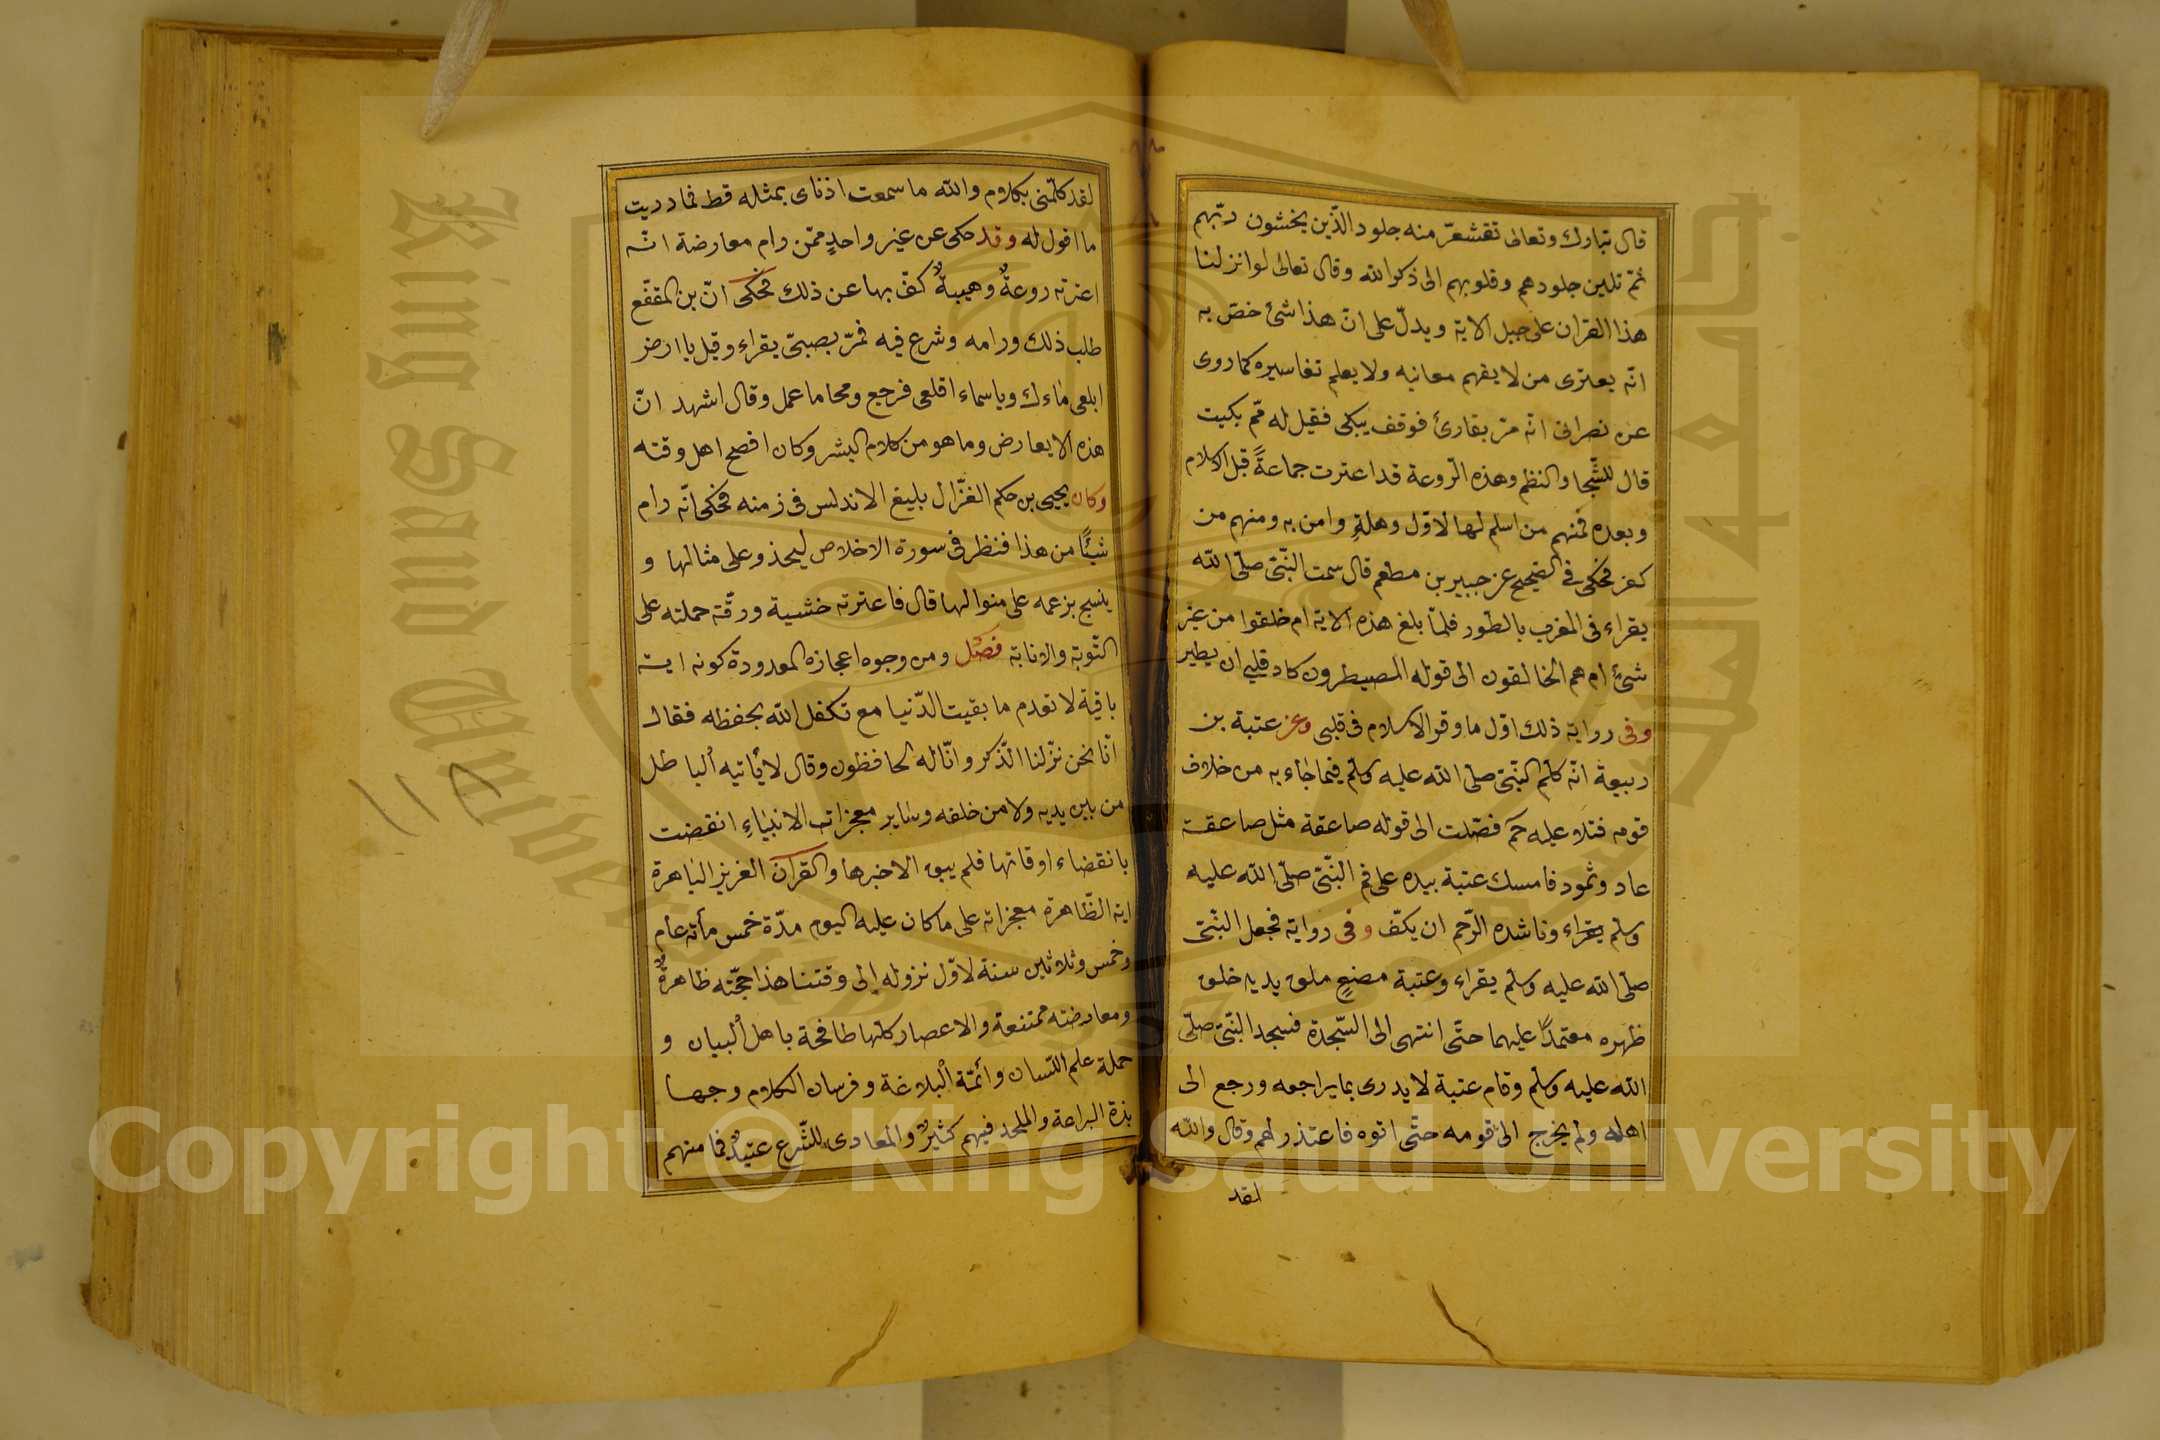 قال تبارك وتعالى تقشعرّ منه جلود الّذين يخشون ربّهم
ثمّ تلين جلودهم وقلوبهم الى ذكر الله وقال تعالى لو انزلنا
هذا القران على جبل الاية ويدلّ على انّ هذا شئ خصّ به
انّه يعترى من لا يفهم معانيه ولا يعلم تفاسيره كما روى
عن نصرانى انّه مرّ بقارئ فوقف يبكى فقيل له ممّ بكيت
قال للشّجا والنظم وهذه الرّوعة قد اعترت جماعةً قبل الاسلام
وبعده فمنهم من اسلم لها لاوّل وهلةٍ وامن به ومنهم من
كفر فحكى فى الصّحيح عن جبير بن مطعم قال سمعت النّبىّ صلّى الله
يقراء فى المغرب بالطّور فلمّا بلغ هذه الاية ام خلقوا من غير
شئٍ ام هم الخالقون الى قوله المصيطرون كاد قلبى ان يطير
وفى رواية ذلك اوّل ما وقر الاسلام فى قلبى وعن عتبة بن
ربيعة انّه كلّم النّبىّ صلّى الله عليه وسلّم فيما جاء به من خلاف
قومه فتلا عليه حمۤ فصّلت الى قوله صاعقة مثل صاعقة
عاد وثمود فامسك عتبة بيده على فم النّبىّ صلّى الله عليه
وسلّم يقراء وناشده الرّحم ان يكفّ وفى رواية فجعل النّبىّ
صلّى الله عليه وسلّم يقراء وعتبة مصغٍ ملق يديه خلق
ظهره معتمداً عليهما حتّى انتهى الى السّجدة فسجد النّبىّ صلّى
الله عليه وسلّم وقام عتبة لا يدرى بما يراجعه ورجع الى
اهله ولم يخرج الى قومه حتّى اتوه فاعتذر لهم وقال والله
لقد
لقد كلّمنى بكلام والله ما سمعت اذناى بمثله قط فما دريت
ما اقول له وقد حكى عن غير واحدٍ ممّن رام معارضة انّه
اعترته روعةٌ وهيبةٌ كفّ بها عن ذلك فحكى انّ بن المقفّع
طلب ذلك ورامه وشرع فيه فمرّ بصبىّ يقراء وقيل يا ارض
ابلعى ماءك وياسماء اقلعى فرجع ومحا ما عمل وقال اشهد انّ
هذه لا يعارض وما هو من كلام البشر وكان افصح اهل وقته
وكان يحيى بن حكم الغزّال بليغ الاندلس فى زمنه فحكى انّه رام
شيئًا من هذا فنظر فى سورة الاخلاص ليحذو على مثالها و
ينسج بزعمه على منوالها قال فاعترته خشية ورقّة حملته على
التّوبة والانابة فصل ومن وجوه اعجازه المعدودة كونه اية
باقية لا تعدم ما بقيت الدّنيا مع تكفل الله بحفظه فقال
انّا نحن نزّلنا الذّكر وانّا له لحافظون وقال لا يأتيه ألباطل
من بين يديه ولا من خلفه وسائر معجزات الانبياء انقضت
بانقضاء اوقاتها فلم يبق الا خبرها والقرآن العزيز الباهرة
ايته الظّاهرة معجزاته على ما كان عليه اليوم مدّة خمس مأته عام
وخمس وثلاثين سنة لاوّل نزوله إلى وقتنا هذا حجّته ظاهرةٌ
ومعارضته ممتنعة والاعصار كلّها طافحة باهل ألبيان و
حملة علم اللّسان وأئمّة ألبلاغة وفرسان الكلام وجها
بذة البراعة والملحد فيهم كثيرٌ والمعادى للشّرع عتيدٌ فما منهم
King Saud University
جامعة الملك سعود
1957
Copyright © King Saud University